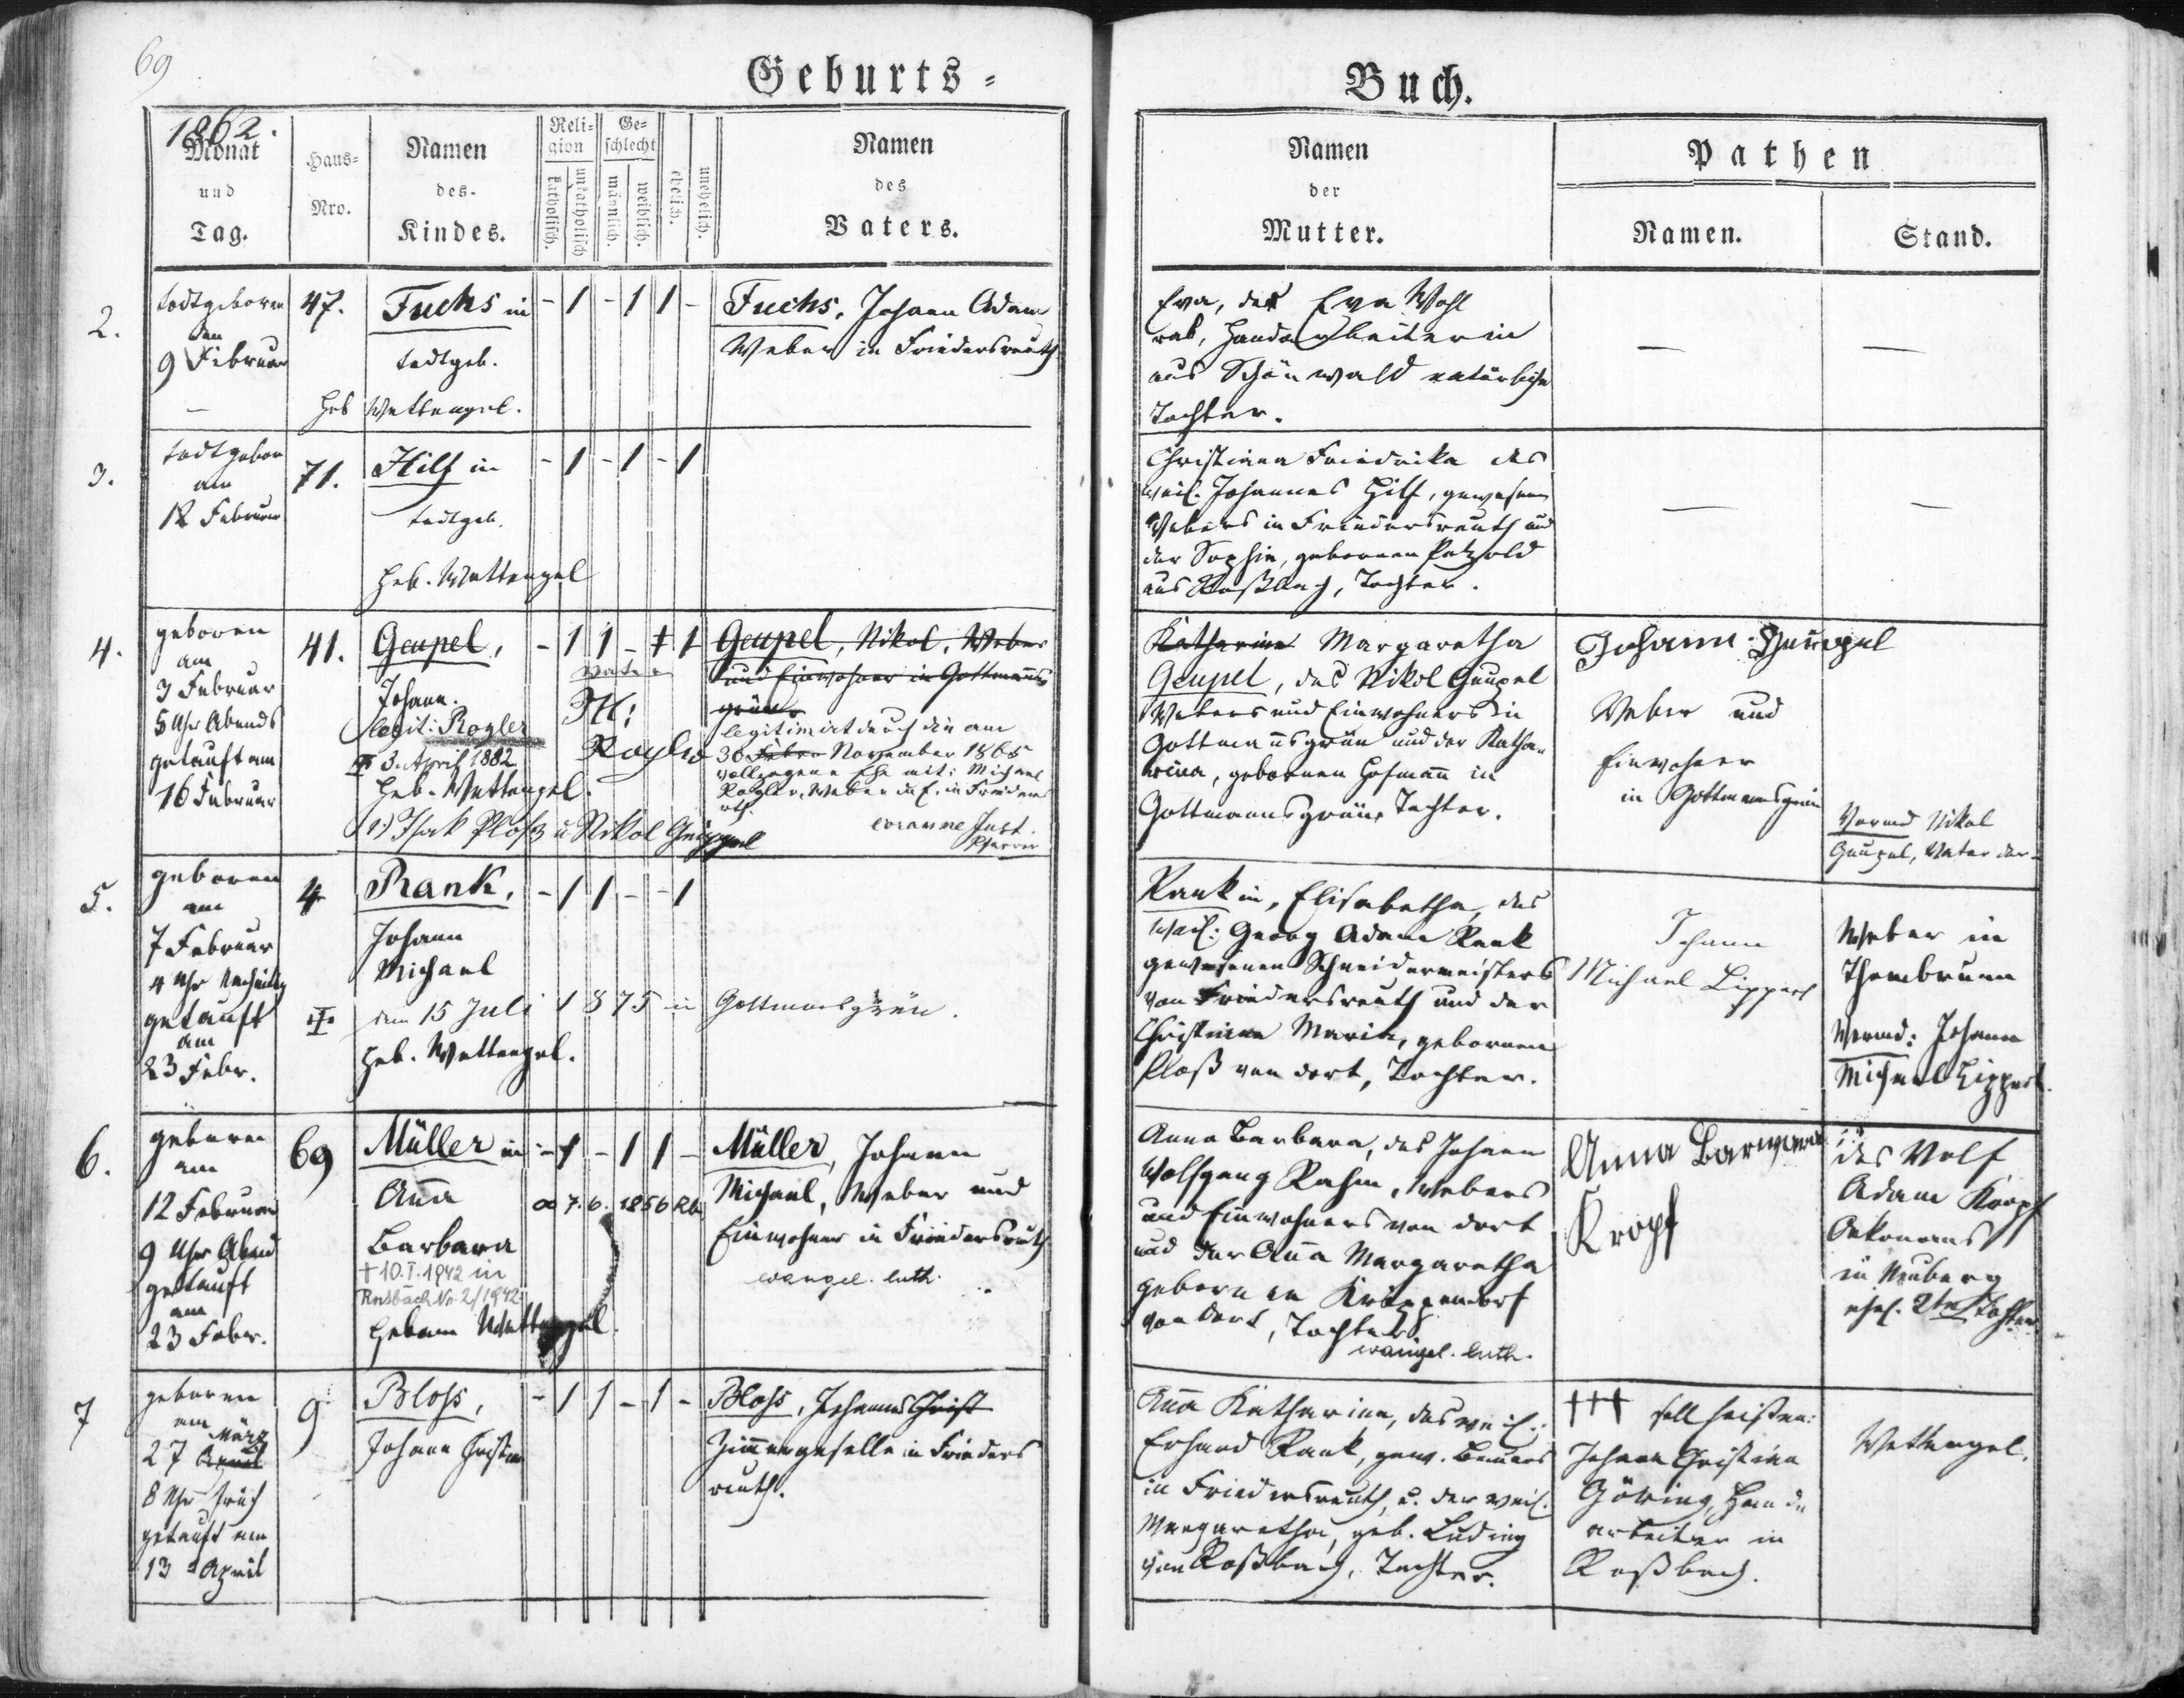 69
Geburts=
Buch.
1862.
Monat
und
Tag.
Haus=
Nro.
Namen
des
Kindes.
Reli=
gion
katholisch.
unkatholisch
Ge=
schlecht
männlich.
weiblich.
ehelich.
unehelich.
Namen
des
Vaters.
Namen
der
Mutter.
Pathen
Namen.
Stand.
2.
todtgeboren
den
9 Februar
47.
Fuchs in
todtgeb.
Heb Wettengel.
- 1 - 1 1 -
Fuchs, Johann Adam
Weber in Friedersreuth
Eva, der Eva Wohl
rab, Handarbeiterin
aus Schönwald natürliche
Tochter.
—
—
3.
todtgebor
am
12 Februar
71.
Hilf in
todtgeb.
Heb. Wettengel
- 1 - 1 - 1
Christiana Friedrika des
weil. Johannes Hilf, gewesenen
Webers in Friedersreuth und
der Sophie, gebornen Petzold
aus Roßbach, Tochter.
—
—
4.
geboren
am
3 Februar
5 Uhr Abends
getauft am
16 Februar
41.
Geupel,
Johann.
legit: Rogler
3. April 1882
Heb. Wettengel.
1) Isak Ploß u Nikol Geuppel
- 1 1 - 1 1
Rogler
Geupel, Nikol, Weber
und Einwohner in Gottmanns
grün
legitimirt durch die am
30 November 1865
vollzogene Ehe mit: Michael
Rogler, Weber u. E. in Frieders
rth.
coramne Just.
Pfarrer
Katharina Margaretha
Geupel, des Nikol Geupel
Webers und Einwohners in
Gottmannsgrün und der Katha
rina, gebornen Hofmann in
Gottmannsgrün, Tochter.
Johann Geupel
Weber und
Einwohner
in Gottmannsgrün
Vormd Nikol
Geupel, Vater der
5.
geboren
am
7 Februar
4 Uhr Nachmittag
getauft
am
23 Febr.
4
Rank,
Johann
Michael
den 15 Juli 1875 in Gottmannsgrün.
Heb. Wettengel.
- 1 1 - - 1
Rank in, Elisabetha, des
weil: Georg Adam Rank
gewesenen Schneidermeisters
von Friedersreuth und der
Christiana Maria, gebornen
Ploß von dort, Tochter.
Johann
Michael Lippert
Weber in
Thonbrunn
Vormd: Johann
Michael Lippert.
6.
geboren
am
12 Februar
9 Uhr Abend
getauft
am
23 Febr.
69
Müller in
Anna
Barbara
† 10. I. 1942 in
Rossbach No. 2/1942
Hebam Wettengel.
- 1 - 1 1 -
∞ 7. 6. 1856 Rb.
Müller, Johann
Michael, Weber und
Einwohner in Friedersreuth
evangel. luth.
Anna Barbara, des Johann
Wolfgang Rahm, Webers
und Einwohners von dort
und der Anna Margaretha
gebornen Krippendorf
von dort, Tochter
evangel. luth.
Anna Barwara
Kropf
des Wolf
Adam Kropf
Oekonoms
in Neuberg
ehel. 2te Tochter
7
geboren
am
März
27 April
8 Uhr früh
getauft am
13 April
9
Bloss,
Johann Christian
- 1 1 - 1 -
Bloss, Johannes Christ
Zimmergeselle in Frieders
reuth.
Anna Katharina, des weil:
Erhard Rank, gew. Bauers
in Friedersreuth, u. der weil.
Margaretha, geb. Luding
von Roßbach, Tochter.
††† soll heißen:
Johann Christian
Göring, Hand
arbeiter in
Roßbach.
Wettengel.